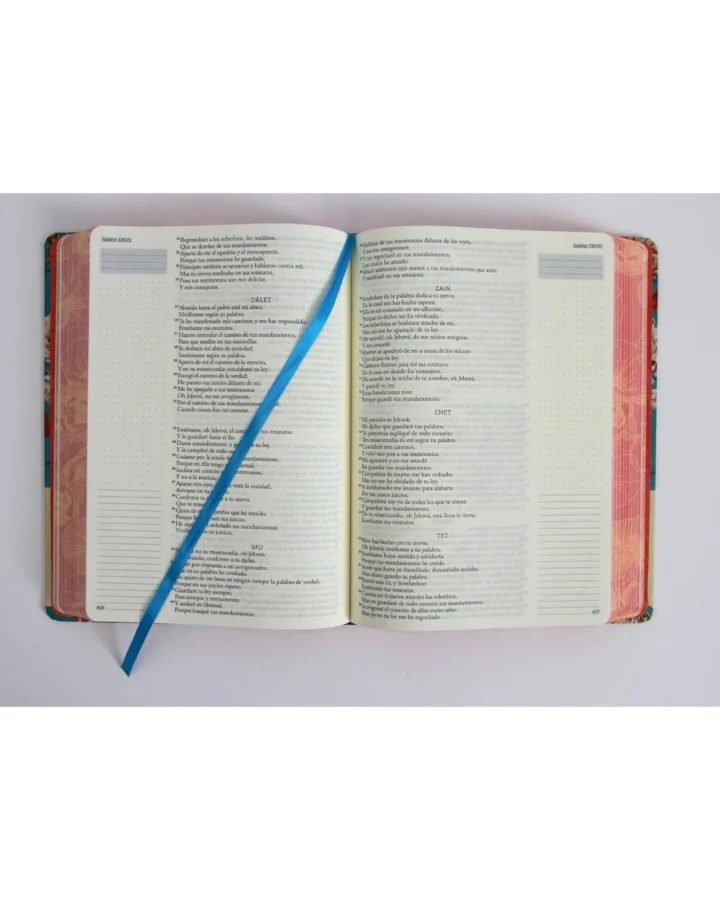 Salmos 119:21
21 Reprendiste a los soberbios, los malditos,
Que se desvían de tus mandamientos.
22 Aparta de mí el oprobio y el menosprecio,
Porque tus testimonios he guardado.
23 Príncipes también se sentaron y hablaron contra mí;
Mas tu siervo meditaba en tus estatutos,
24 Pues tus testimonios son mis delicias
Y mis consejeros.
DÁLET
25 Abatida hasta el polvo está mi alma;
Vivifícame según tu palabra.
26 Te he manifestado mis caminos, y me has respondido;
Enséñame tus estatutos.
27 Hazme entender el camino de tus mandamientos,
Para que medite en tus maravillas.
28 Se deshace mi alma de ansiedad;
Susténtame según tu palabra.
29 Aparta de mí el camino de la mentira,
Y en tu misericordia concédeme tu ley.
30 Escogí el camino de la verdad;
He puesto tus juicios delante de mí.
31 Me he apegado a tus testimonios;
Oh Jehová, no me avergüences.
32 Por el camino de tus mandamientos
Cuando ensanches mi corazón.
33 Enséñame, oh Jehová, el estatutos,
Y lo guardaré hasta el fin.
34 Dame entendimiento, y tu ley,
Y la cumpliré de todo
35 Guíame por la senda de mandamientos,
Porque en ella tengo
36 Inclina mi corazón a testimonios,
Y no a la avaricia.
37 Aparta mis ojos, vanidad;
Avívame en tu
38 Confirma tu a tu siervo,
Que te
39 Quita de mí oprobio que he temido,
Porque buenos son tus juicios.
40 He aquí anhelado tus mandamientos;
Vivifícame tu justicia.
VAU
a mí tu misericordia, oh Jehová;
salvación, conforme a tu dicho.
por respuesta a mi avergonzador,
en tu palabra he confiado.
No quites de mi boca en ningún tiempo la palabra de verdad,
Porque en tus juicios espero.
44 Guardaré tu ley siempre,
Para siempre y eternamente.
45 Y andaré en libertad,
Porque busqué tus mandamientos.
616
Salmos 119:70
46 Hablaré de tus testimonios delante de los reyes,
Y no me avergonzaré;
47 Y me regocijaré en tus mandamientos,
Los cuales he amado.
48 Alzaré asimismo mis manos a tus mandamientos que amé,
Y meditaré en tus estatutos.
ZAIN
49 Acuérdate de la palabra dada a tu siervo,
En la cual me has hecho esperar.
50 Ella es mi consuelo en mi aflicción,
Porque tu dicho me ha vivificado.
51 Los soberbios se burlaron mucho de mí,
Mas no me he apartado de tu ley.
52 Me acordé, oh Jehová, de tus juicios antiguos,
Y me consolé.
53 Horror se apoderó de mí a causa de los inicuos
Que dejan tu ley.
54 Cánticos fueron para mí tus estatutos
En la casa en donde fui extranjero.
55 Me acordé en la noche de tu nombre, oh Jehová,
Y guardé tu ley.
56 Estas bendiciones tuve
Porque guardé tus mandamientos.
CHET
57 Mi porción es Jehová;
He dicho que guardaré tus palabras.
58 Tu presencia supliqué de todo corazón;
Ten misericordia de mí según tu palabra.
59 Consideré mis caminos,
Y volví mis pies a tus testimonios.
60 Me apresuré y no me retardé
En guardar tus mandamientos.
61 Compañías de impíos me han rodeado,
Mas no me he olvidado de tu ley.
62 A medianoche me levanto para alabarte
Por tus justos juicios.
63 Compañero soy yo de todos los que te temen
Y guardan tus mandamientos.
64 De tu misericordia, oh Jehová, está llena la tierra;
Enséñame tus estatutos.
TET
65 Bien has hecho con tu siervo,
Oh Jehová, conforme a tu palabra.
66 Enséñame buen sentido y sabiduría,
Porque tus mandamientos he creído.
67 Antes que fuera yo humillado, descarriado andaba;
Mas ahora guardo tu palabra.
68 Bueno eres tú, y bienhechor;
Enséñame tus estatutos.
69 Contra mí forjaron mentira los soberbios,
Mas yo guardaré de todo corazón tus mandamientos.
70 Se engrosó el corazón de ellos como sebo,
Mas yo en tu ley me he regocijado.
617